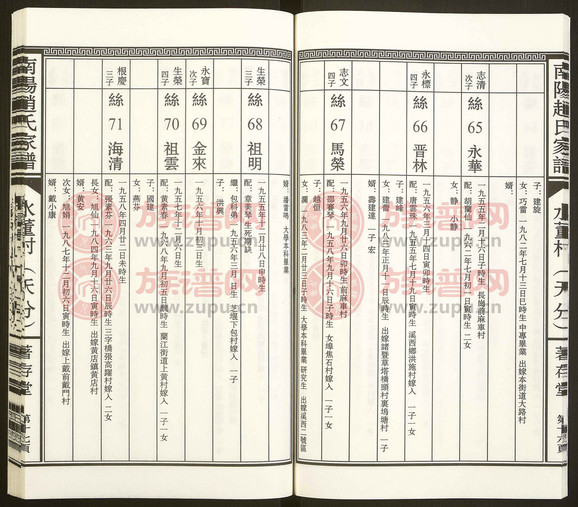 南陽趙氏家譜
永董村（天八分）
著存堂
子：建旋
女：巧雷 一九八二年七月十三日巳時生 中專畢業 出嫁本街道大路村
婿：
志清
次子
絲 65 永華
一九五五年二月十六日子時生 長崗蔣麻車村
配：胡蘭仙 一九六二年七月初一日寅時生 二女
女：靜 小靜
永標
四子
絲 66 晋林
一九五五年三月十四日寅卯時生
配：唐雲珠 一九五五年七月十九日寅時生 溪西鄉洪施村嫁人 一子一女
子：建峰
女：建蕾 一九八三年正月十一日辰時生 出嫁諸暨草塔橋頭村裏塢塘村 一子
婿：壽建達 一子 宏
志文
四子
絲 67 馬榮
一九五六年九月卯時生 前麻車村
配：邵春琴 一九六五年九月十六日子時生 女埠焦石村嫁人 一子一女
子：越恒
女：瀾 一九八三年二月廿三日子時生 大學本科畢業 研究生 出嫁溪西二號區
婿：潘雷鳴 大學本科畢業
生榮
三子
絲 68 祖明
一九五五年十二月廿八日申時生
配：章美琴 生死期缺
繼：包科弟 一九五六年三月 日生 芝堰下包村嫁人 一子
子：洪興
永寶
次子
絲 69 金來
一九五七年十月初三日生
生榮
四子
絲 70 祖雲
一九五七年十一月 日生
配：黃素春 一九五八年九月初五日醜時生 蘭江街道上黃村嫁人 一子一女
子：國建
女：燕芬
根慶
三子
絲 71 海清
一九五八年四月廿二日未時生
配：張素芬 一九六三年九月廿六日辰時生 三字橋張高羅村嫁人 二女
長女：旭仙 一九八四年九月十六日寅時生 出嫁黃店鎮黃店村
婿：黃安
次女：旭娟 一九八七年十二月初六日寅時生 出嫁上戴前戴門村
婿：戴小康
南陽趙氏家譜
永董村（天八分）
著存堂
族谱网
www.zupu.cn
族谱网
www.zupu.cn